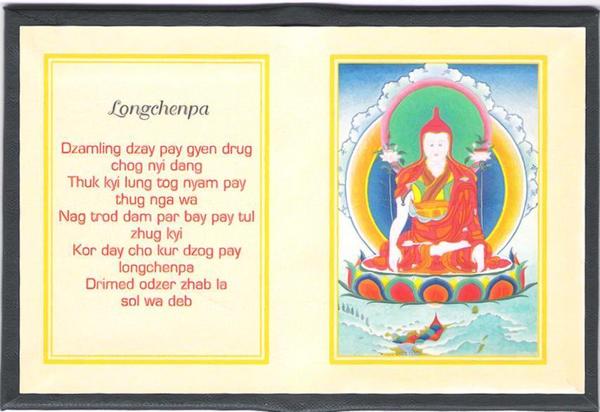 Longchenpa
Dzamling dzay pay gyen drug
chog nyi dang
Thuk kyi lung tog nyam pay
thug nga wa
Nag trod dam par bay pay tul
zhug kyi
Kor day cho kur dzog pay
longchenpa
Drimed odzer zhab la
sol wa deb